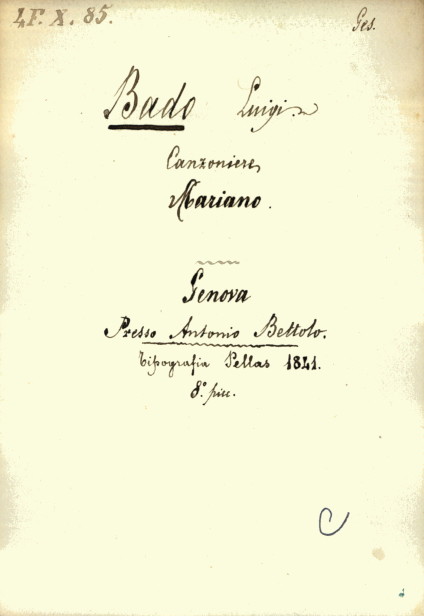 4F. X. 85.
Ges.
Bado Luigi
Canzoniere
Mariano.
Genova
Presso Antonio Bettolo.
Tipografia Pellas 1841.
8.° picc.